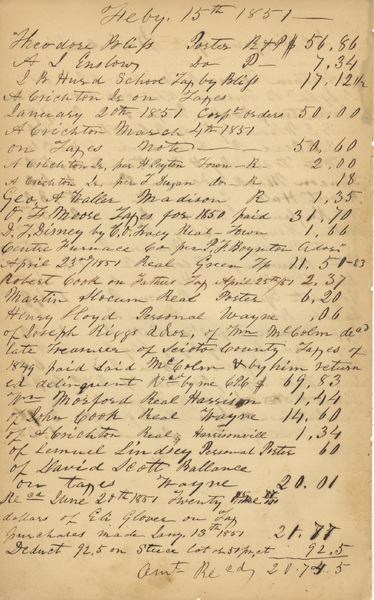 Feby. 15th 1851
Theodore Bliss Porter R & P $ 56,86
A I Enslow, Do P 7,34
I B Hurd School Tax by Bliss 17,12
A Crichton Dr on Tapes
January 20th 1851 Corpt orders 50,00
A Crichton March 4th 1851
on Tapes Note 50,60
A Crichton Dr, per H Peyton Town R 2,00
A Crichton Dr, per do R 18
Geo, A Waller Madison R 1,35
O F Moore Tapes for 1850 paid 31,70
D, F, Disney by C. O. Tracy Real Town 1,66
Centre Furnace Co per Boynton
April 23rd 1851 Real Green Tp 11,50
Robert Cook on Fathers Tap April 25th 51 2,37
Martin Slocum Real Porter 6,20
Henry Floyd Personal Wayne ,06
of Joseph Riggs of Wm McColm
late Treasurer of Scioto County Tapes of
1849 paid Said McColm & by him return
ed delinquent by me $ 69,83
Wm Morford Real Harrison 1,44
of John Cook Real Wayne 14,60
of A Crichton Real Harrisonville 1,34
of Lemuel Lindsey Personal Porter 60
of David Scott Ballance
on tapes Wayne 20.01
Recd June 20th 1851 Twenty
dollars of Eli Glover on Tap
purchases made 13th 1851 21.77
Deduct 92,5 on lot 92.5
Amt Recd,